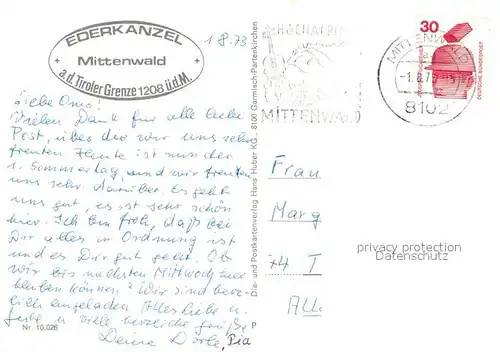 EDERKANZEL
Mittenwald
a.d. Tiroler Grenze 1208 ü.d.M.
1 8. 73
HOCHALPIN
MITTENWALD
MITTENWALD
8102
30
DEUTSCHE BUNDESPOST
Liebe Omo!
Vielen Dank für alle liebe
Post, über die wir uns sehr
freuten. Heute ist nun der
1. Sommertag, und wir freuen
uns sehr darüber. Es geht
uns gut, es ist sehr schön
hier. Ich bin froh, daß bei
Dir alles in Ordnung ist
und es Dir gut geht. Ob
wir bis nächsten Mittwoch hier
bleiben können? Wir sind herz-
lich eingeladen. Alles Liebe u.
Gute u. viele herzliche Grüße
Deine Dörte, Pia
Nr. 10.026
Dia- und Postkartenverlag Hans Huber KG, 8100 Garmisch-Partenkirchen
Frau
Marg
privacy protection
Datenschutz
4 T
All